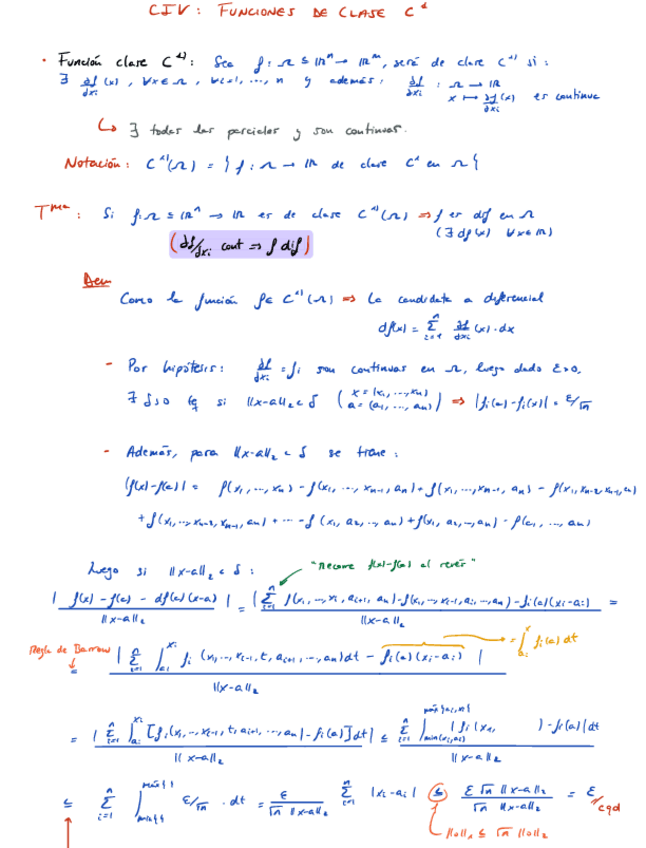 CIV: FUNCIONES DE CLASE C¹
· Función clase C¹⁾: Sea f: Ω ⊆ ℝⁿ → ℝᵐ, será de clase C¹⁾ si:
∃ ∂f/∂xi (x), ∀x∈Ω, ∀i=1, ..., n y además, ∂f/∂xi : Ω → ℝ
x ↦ ∂f/∂xi (x) es continua
↳ ∃ todas las parciales y son continuas.
Notación: C¹⁾(Ω) = { f: Ω → ℝ de clase C¹ en Ω {
Tma: Si f: Ω ⊆ ℝⁿ → ℝ es de clase C¹⁾(Ω) ⇒ f es dif en Ω
(∃ df(x) ∀x∈Ω)
(∂f/∂xi cont ⇒ f dif)
Dem
Como la función f∈ C¹⁾(Ω) ⇒ La candidata a diferencial
df(x) = Σⁿᵢ₌₁ ∂f/∂xi (x) · dx
- Por hipótesis: ∂f/∂xi = fi son continuas en Ω, luego dado ε>0,
∃ δ>0 tq si ||x-a||₂ < δ (x = (x₁, ..., xn) a = (a₁, ..., an)) ⇒ |fi(a)-fi(x)| = ε/√n
- Además, para ||x-a||₂ < δ se tiene:
|f(x)-f(a)| = f(x₁, ..., xn) - f(x₁, ..., xn-1, an) + f(x₁, ..., xn-1, an) - f(x₁, xn-2, xn-1, an)
+ f(x₁, ..., xn-2, xn-1, an) + ... - f(x₁, a₂, ..., an) + f(x₁, a₂, ..., an) - f(a₁, ..., an)
Luego si ||x-a||₂ < δ: "Recorre f(x)-f(a) al revés"
| f(x) - f(a) - df(a)(x-a) / ||x-a||₂ | = | Σⁿᵢ₌₁ f(x₁, ..., xi, ai+1, ..., an) - f(x₁, ..., xi-1, ai, ..., an) - fi(a)(xi-ai) | / ||x-a||₂ =
Regla de Barrow = | Σⁿᵢ₌₁ ∫ₐᵢˣⁱ fi(x₁, ..., xi-1, t, ai+1, ..., an)dt - fi(a)(xi-ai) | / ||x-a||₂ = ∫ₐᵢˣ fi(a) dt
= | Σⁿᵢ₌₁ ∫ₐᵢˣⁱ [fi(x₁, ..., xi-1, t, ai+1, ..., an) - fi(a)]dt | / ||x-a||₂ ≤ Σⁿᵢ₌₁ ∫ min(xi,ai) máx{ai,xi} |fi(x₁, ) - fi(a)| dt / ||x-a||₂
≤ Σⁿᵢ₌₁ ∫ min{} máx{} ε/√n · dt = ε / √n ||x-a||₂ Σⁿᵢ₌₁ |xi-ai| ≤ ε √n ||x-a||₂ / √n ||x-a||₂ = ε cqd
||o||₁ ≤ √n ||o||₂